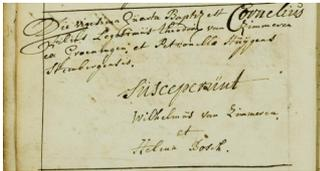 Die vigesima Quarta Baptiz. est Cornelius
filius Legitimus Theodori van Zimmeren
ex Groeningen et Petronella Huijgens
Sambergensis.
Susceperunt
Wilhelmus van Zimmeren
et
Helena Bosch.